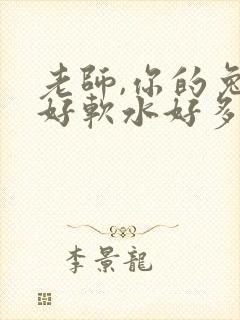 老師,你的兔
好軟水好多
李景龍